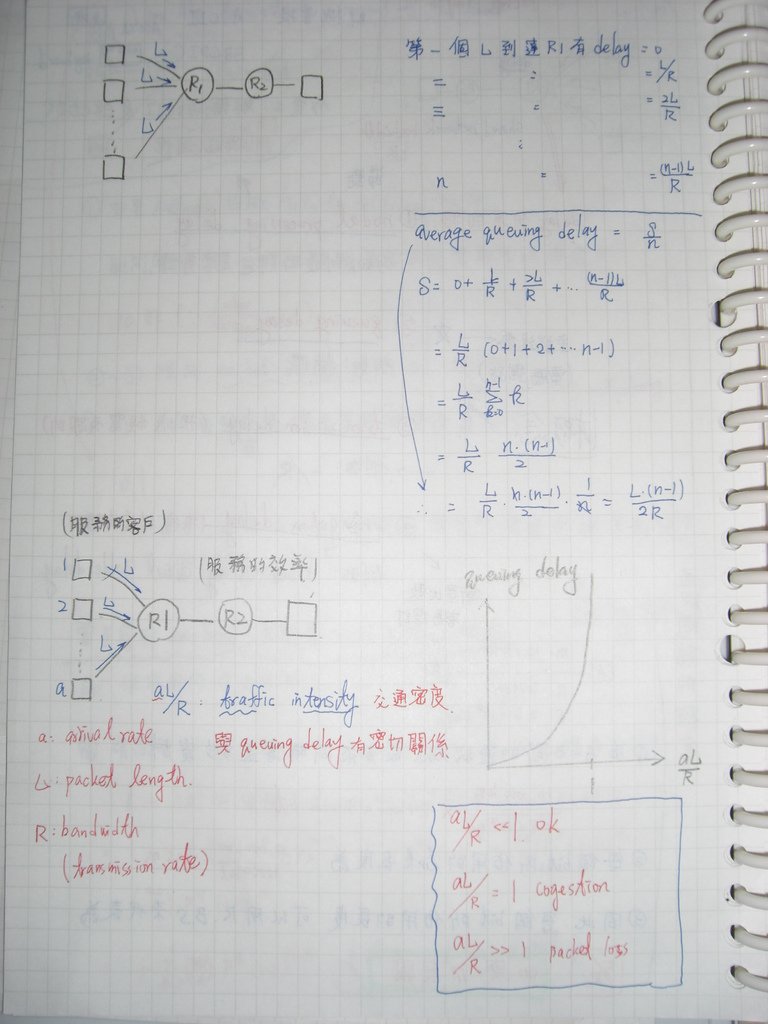 L
L
L
R1
R2
第一個L到達R1有delay = 0
二 〃 = L/R
三 〃 = 2L/R
⋮
n 〃 = (n-1)L/R
average queuing delay = S/n
S = 0 + L/R + 2L/R + ... (n-1)L/R
= L/R (0+1+2+...n-1)
= L/R Σ_{k=0}^{n-1} k
= L/R n·(n-1)/2
∴ = L/R · n·(n-1)/2 · 1/n = L·(n-1)/2R
(服務的客戶)
(服務的效率)
1 L
2 L
L
a
R1
R2
queuing delay
aL/R
1
aL/R : traffic intensity 交通密度
與 queuing delay 有密切關係
a: arrival rate
L: packet length.
R: bandwidth
(transmission rate)
aL/R <<1 ok
aL/R = 1 cogestion
aL/R >> 1 packed loss